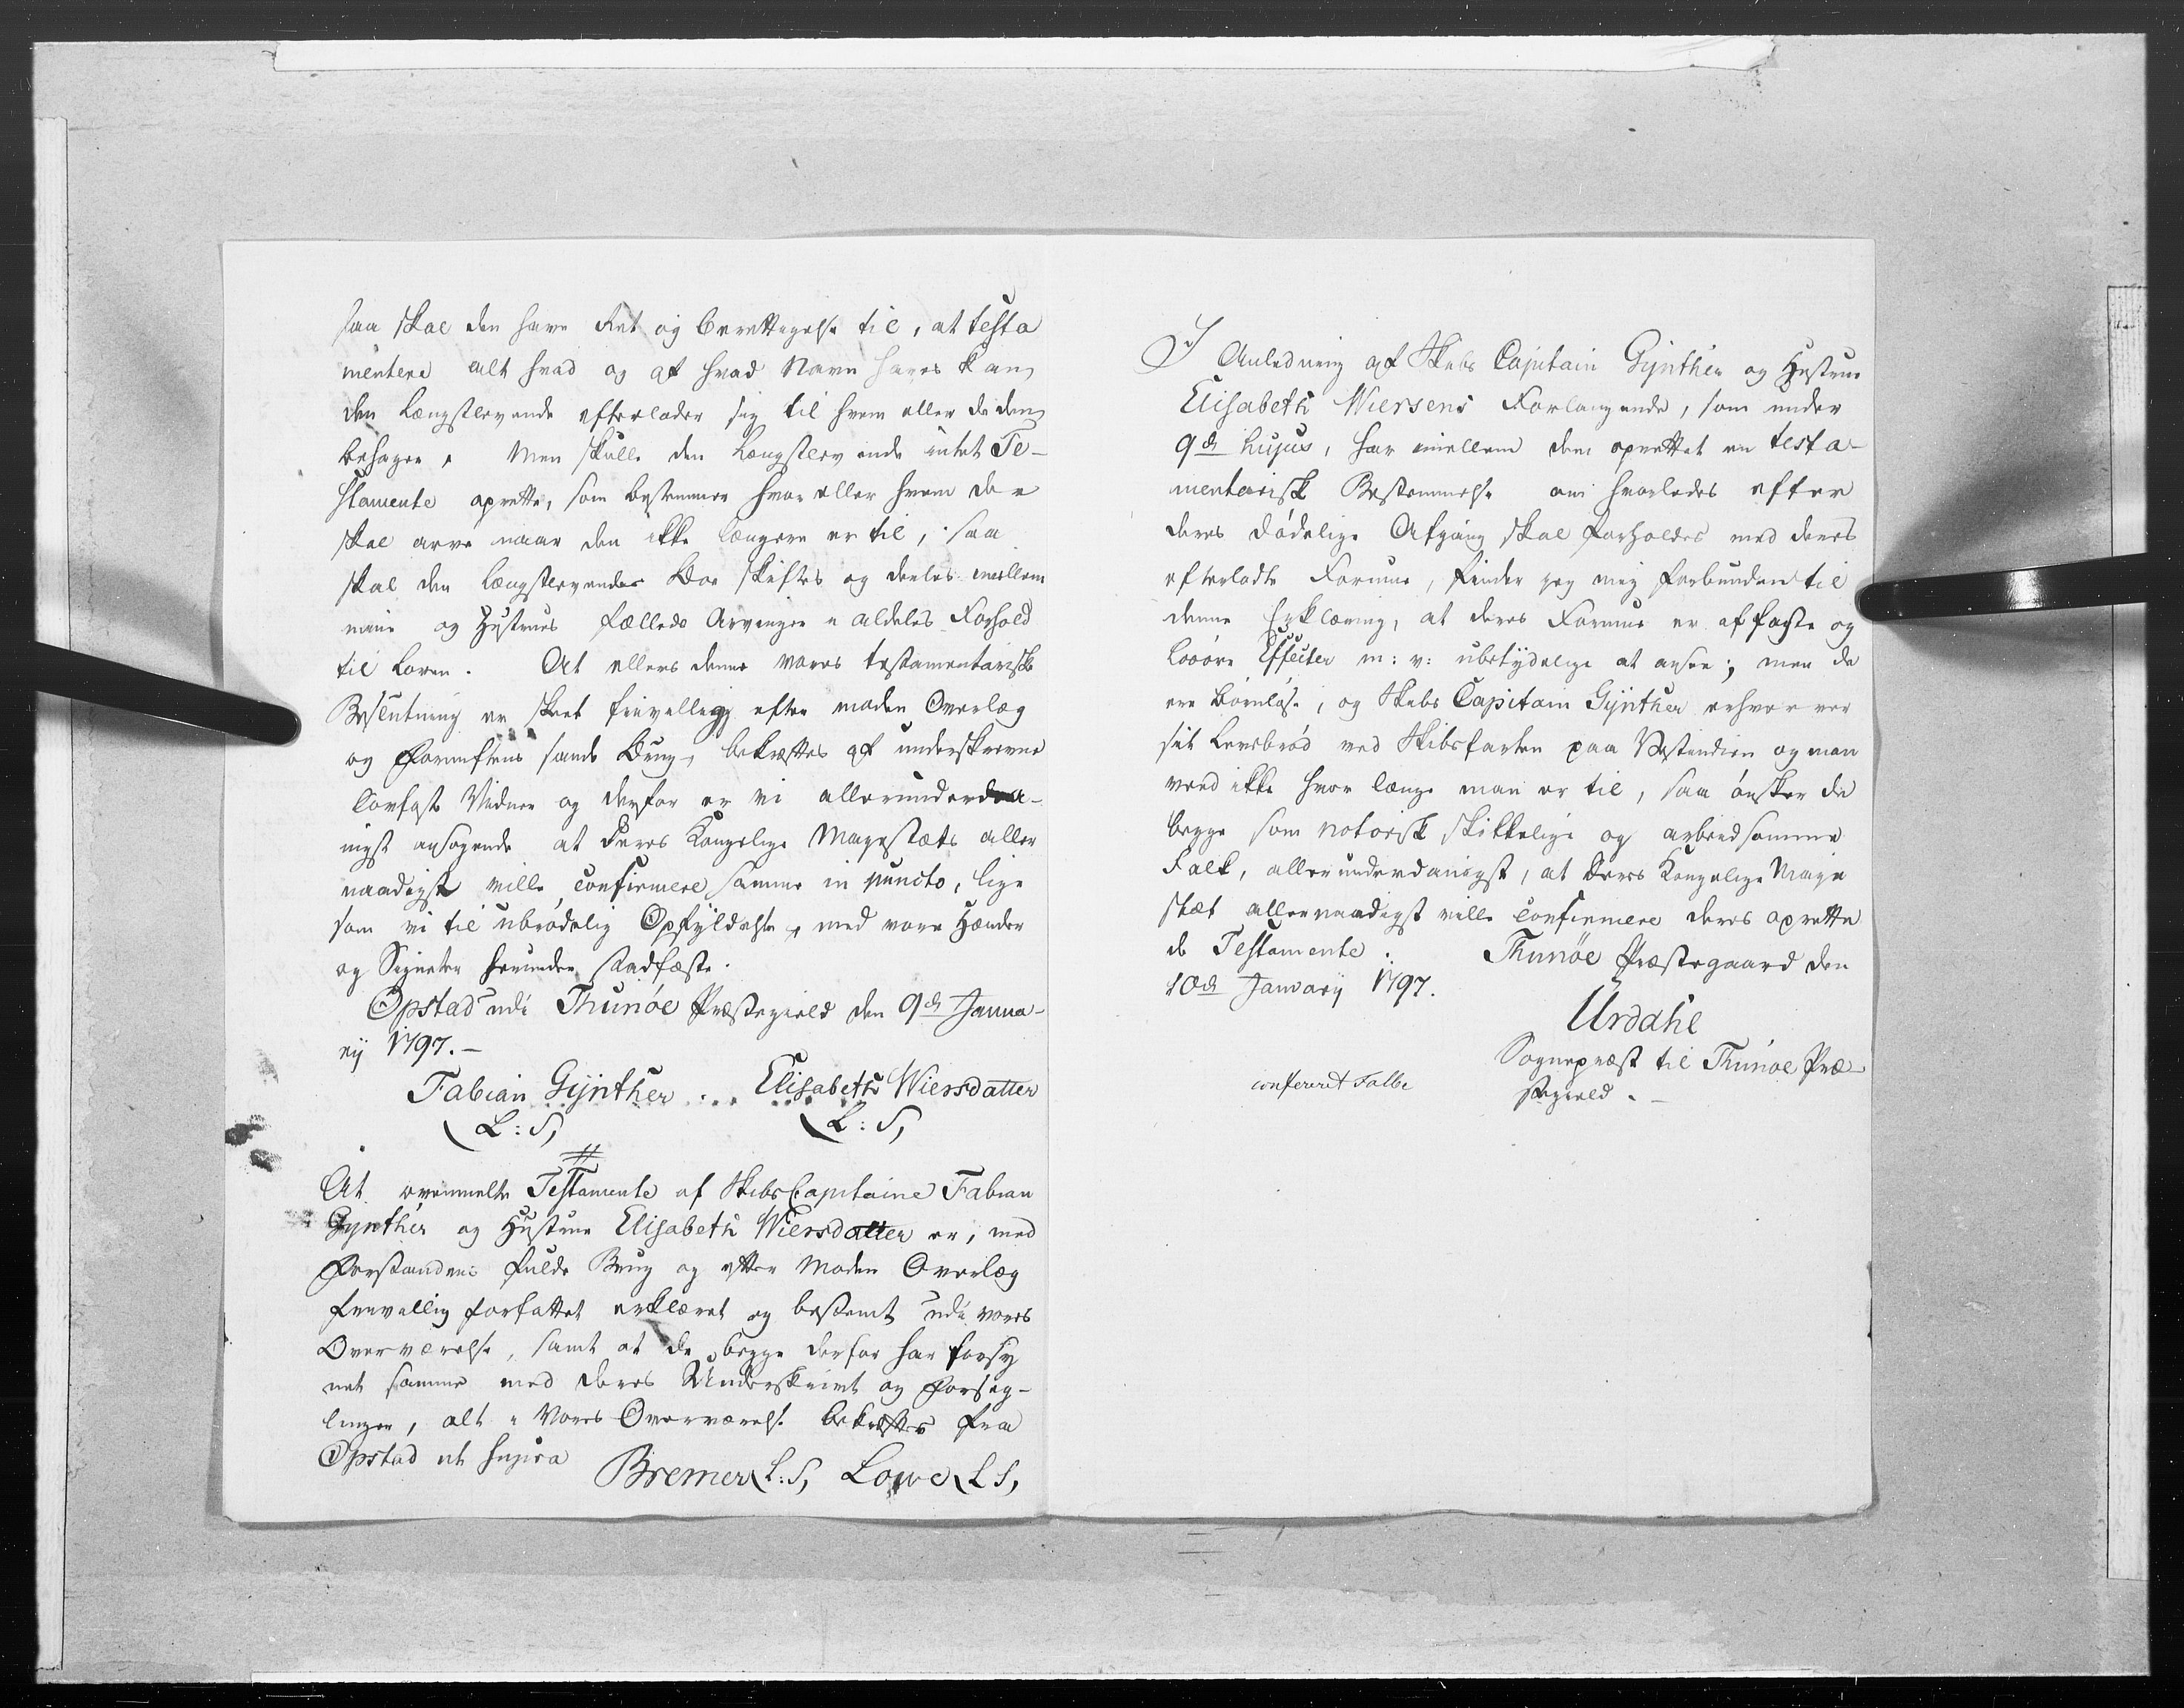 saa skal den have Ret og berettigelse til, at testa
mentere alt hvad og af hvad Navn haves kan,
den Længstlevende efterlader sig til hvem eller de den
behager. Men skulle den Længstlevende intet Te-
stamente oprette, som bestemmer hvor eller hvem der
skal arve naar den ikke længere er til, saa
skal den længstlevendes Boe skiftes og deeles mellem
min og Hustrues fælleds Arvinger i aldeles Forhold
til Loven. At ellers denne vores testamentariske
Beslutning er skeet frievilligg efter moden Overlæg
og Fornuftens sande Brug, bekræftes af underskrevne
Lovfaste Vidner og derfor er vi allerunderda-
nigst ansøgende at Deres Kongelige Mayestæts aller
naadigst ville confirmere samme in puncto, lige
som vi til ubrødelig Opfyldelse, med vore Hænder
og Signeter herunder stadfæste.
Opstad udi Thunøe Præstegield den 9de Janua-
rij 1797.-
Fabian Gÿnther. Elisabeth Wiersdatter
(L:S) (L:S)
At ovenmelte Testamente af Skibs Capitaine Fabian
Gynther og Hustrue Elisabeth Wiersdatter er, med
Forstandens fulde Brug og efter Moden Overlæg
frievillig forfattet erklæret og bestemt udi vores
Overværelse, samt at de begge derfor har forsy
net samme med deres Underskrivt og Forseg-
linger, alt i Vores Overværelse bekræftes fra
Opstad ut supra Bremer (L:S) Lowe (LS)
I Anledning af Skibs Capitain Gÿnther og Hustrue
Elisabeth Wiersens Forlangende, som under
9de hujus, har imellem dem oprettet en testa-
mentarisk Bestemmelse om hvorledes efter
deres dødelige Afgang skal forholdes med deres
efterladte Formue, finder jeg mig forbunden til
denne Erklæring, at deres Formue er af faste og
Løsøre Effecter m: v: ubetydelige at ansee; men da
ere børnløse, og Skibs Capitain Gÿnther erhverver
sit Levebrød ved Skibsfarten paa Vestindien og man
veed ikke hvor længe man er til, saa ønsker de
begge som notorisk skikkelige og arbeidsomme
Folk, allerunderdanigst, at Deres Kongelige Maye
stæt allernaadigst ville confirmere deres oprette
de Testamente. Thunøe Præstegaard den
10de Januarij 1797.
Urdahl
Sognepræst til Thunøe Præ-
stegield.-
confereret Falbe